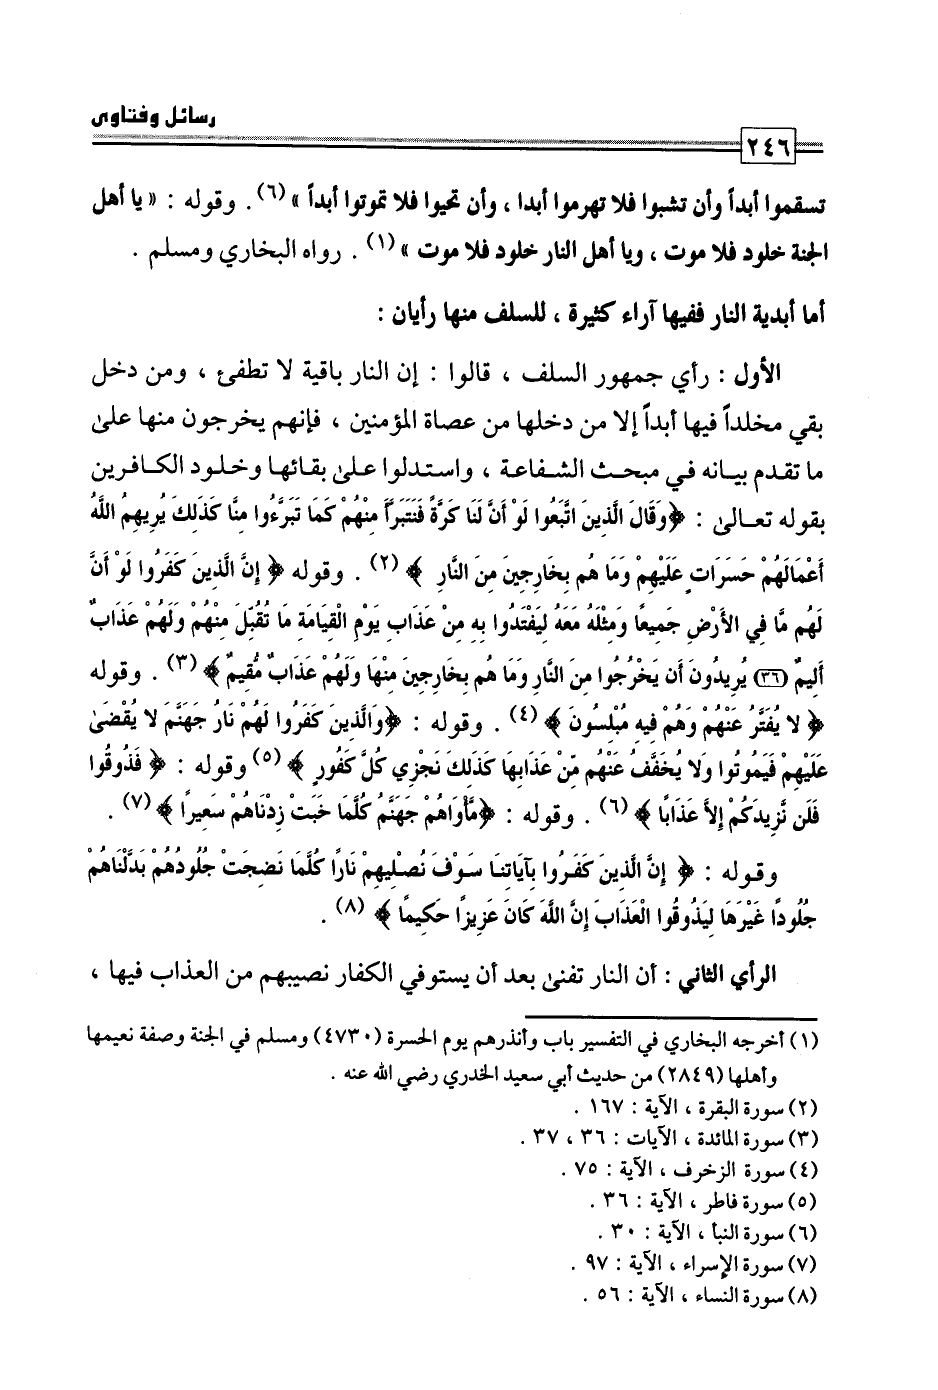 رسائل وفتاوى
٢٤٦
تسقموا أبداً وأن تشبوا فلا تهرموا أبدا ، وأن تحيوا فلا تموتوا أبداً » (٦) . وقوله : « يا أهل
الجنة خلود فلا موت ، ويا أهل النار خلود فلا موت » (١) . رواه البخاري ومسلم .
أما أبدية النار ففيها آراء كثيرة ، للسلف منها رأيان :
الأول : رأي جمهور السلف ، قالوا : إن النار باقية لا تطفئ ، ومن دخل
بقي مخلداً فيها أبداً إلا من دخلها من عصاة المؤمنين ، فإنهم يخرجون منها علىٰ
ما تقدم بيانه في مبحث الشفاعة ، واستدلوا علىٰ بقائها وخلود الكافرين
بقوله تعالىٰ : ﴿وَقَالَ الَّذِينَ اتَّبَعُوا لَوْ أَنَّ لَنَا كَرَّةً فَنَتَبَرَّأَ مِنْهُمْ كَمَا تَبَرَّءُوا مِنَّا كَذَلِكَ يُرِيهِمُ اللَّهُ
أَعْمَالَهُمْ حَسَرَاتٍ عَلَيْهِمْ وَمَا هُم بِخَارِجِينَ مِنَ النَّارِ ﴾ (٢) . وقوله ﴿ إِنَّ الَّذِينَ كَفَرُوا لَوْ أَنَّ
لَهُم مَّا فِي الأَرْضِ جَمِيعًا وَمِثْلَهُ مَعَهُ لِيَفْتَدُوا بِهِ مِنْ عَذَابِ يَوْمِ الْقِيَامَةِ مَا تُقُبِّلَ مِنْهُمْ وَلَهُمْ عَذَابٌ
أَلِيمٌ (٣٦) يُرِيدُونَ أَن يَخْرُجُوا مِنَ النَّارِ وَمَا هُم بِخَارِجِينَ مِنْهَا وَلَهُمْ عَذَابٌ مُّقِيمٌ ﴾ (٣) . وقوله
﴿ لا يُفَتَّرُ عَنْهُمْ وَهُمْ فِيهِ مُبْلِسُونَ ﴾ (٤) . وقوله : ﴿وَالَّذِينَ كَفَرُوا لَهُمْ نَارُ جَهَنَّمَ لا يُقْضَىٰ
عَلَيْهِمْ فَيَمُوتُوا وَلا يُخَفَّفُ عَنْهُم مِّنْ عَذَابِهَا كَذَلِكَ نَجْزِي كُلَّ كَفُورٍ ﴾ (٥) وقوله : ﴿ فَذُوقُوا
فَلَن نَّزِيدَكُمْ إِلاَّ عَذَابًا ﴾ (٦) . وقوله : ﴿مَّأْوَاهُمْ جَهَنَّمُ كُلَّمَا خَبَتْ زِدْنَاهُمْ سَعِيرًا ﴾ (٧) .
وقوله : ﴿ إِنَّ الَّذِينَ كَفَرُوا بِآيَاتِنَا سَوْفَ نُصْلِيهِمْ نَارًا كُلَّمَا نَضِجَتْ جُلُودُهُمْ بَدَّلْنَاهُمْ
جُلُودًا غَيْرَهَا لِيَذُوقُوا الْعَذَابَ إِنَّ اللَّهَ كَانَ عَزِيزًا حَكِيمًا ﴾ (٨) .
الرأي الثاني : أن النار تفنىٰ بعد أن يستوفي الكفار نصيبهم من العذاب فيها ،
(١) أخرجه البخاري في التفسير باب وأنذرهم يوم الحسرة (٤٧٣٠) ومسلم في الجنة وصفة نعيمها
وأهلها (٢٨٤٩) من حديث أبي سعيد الخدري رضي الله عنه .
(٢) سورة البقرة ، الآية : ١٦٧ .
(٣) سورة المائدة ، الآيات : ٣٦ ، ٣٧ .
(٤) سورة الزخرف ، الآية : ٧٥ .
(٥) سورة فاطر ، الآية : ٣٦ .
(٦) سورة النبأ ، الآية : ٣٠ .
(٧) سورة الإسراء ، الآية : ٩٧ .
(٨) سورة النساء ، الآية : ٥٦ .